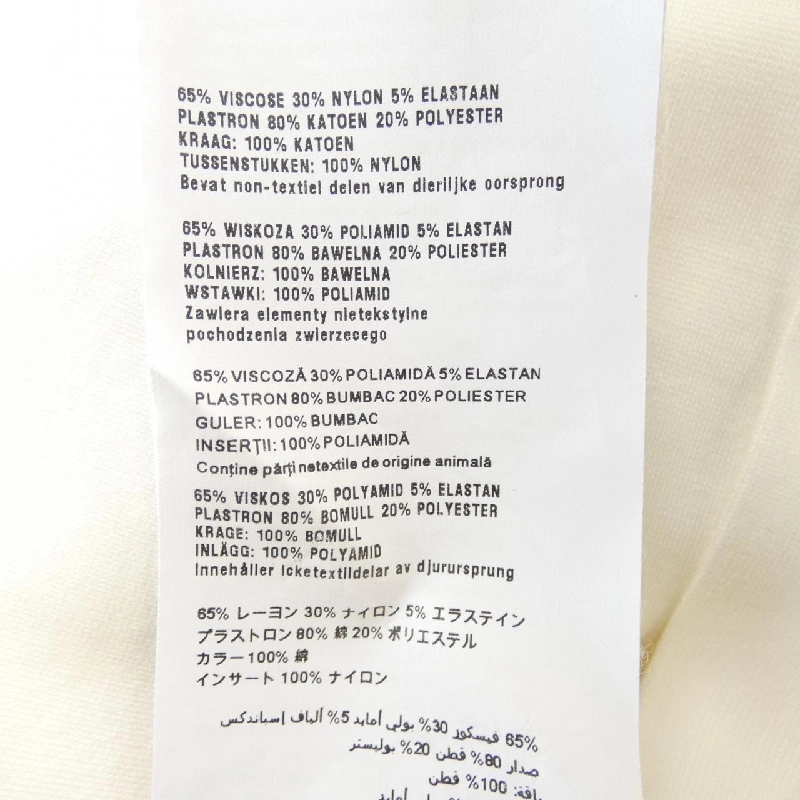 65% VISCOSE 30% NYLON 5% ELASTAAN
PLASTRON 80% KATOEN 20% POLYESTER
KRAAG: 100% KATOEN
TUSSENSTUKKEN: 100% NYLON
Bevat non-textiel delen van dierlijke oorsprong
65% WISKOZA 30% POLIAMID 5% ELASTAN
PLASTRON 80% BAWELNA 20% POLIESTER
KOLNIERZ: 100% BAWELNA
WSTAWKI: 100% POLIAMID
Zawiera elementy nietekstylne
pochodzenia zwierzecego
65% VISCOZĂ 30% POLIAMIDĂ 5% ELASTAN
PLASTRON 80% BUMBAC 20% POLIESTER
GULER: 100% BUMBAC
INSERȚII: 100% POLIAMIDĂ
Conține părți netextile de origine animală
65% VISKOS 30% POLYAMID 5% ELASTAN
PLASTRON 80% BOMULL 20% POLYESTER
KRAGE: 100% BOMULL
INLÄGG: 100% POLYAMID
Innehåller Icketextildelar av djurursprung
65% レーヨン 30% ナイロン 5% エラステイン
プラストロン 80% 綿 20% ポリエステル
カラー 100% 綿
インサート 100% ナイロン
65% فيسكوز 30% بولي أمايد 5% ألياف إسباندكس
صدار 80% قطن 20% بوليستر
ياقة: 100% قطن
بولي أمايد